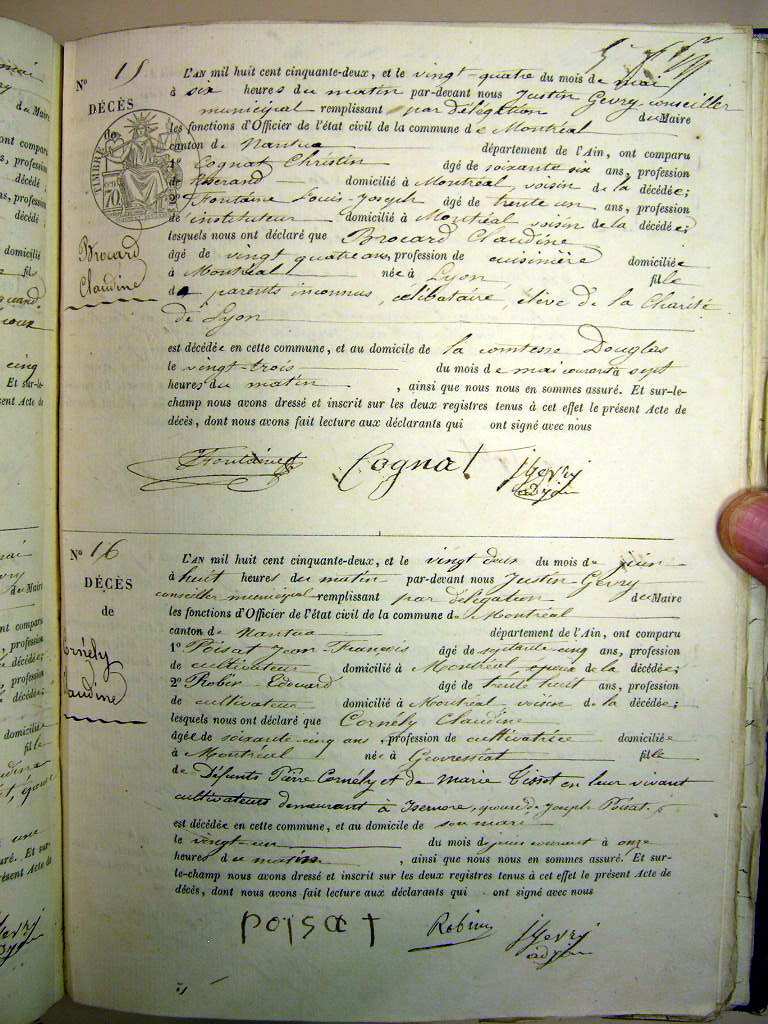 N° 15
DÉCÈS
de
TIMBRE
70
Brocard
Claudine
L'AN mil huit cent cinquante-deux, et le vingt-quatre du mois de mai
à six heures du matin par-devant nous Justin Gevry conseiller
municipal remplissant par délégation du Maire
les fonctions d'Officier de l'état civil de la commune de Montréal
canton de Nantua département de l'Ain, ont comparu
1° Cognat Christin âgé de soixante six ans, profession
de tisserand domicilié à Montréal, voisin de la décédée;
2° Fontaine Louis-Joseph âgé de trente un ans, profession
de instituteur domicilié à Montréal voisin de la décédée;
lesquels nous ont déclaré que Brocard Claudine
âgé de vingt quatre ans, profession de cuisinière domiciliée
à Montréal née à Lyon fille
de parents inconnus, célibataire, élève de la Charité
de Lyon
est décédée en cette commune, et au domicile de la comtesse Douglas
le vingt-trois du mois de mai courant à sept
heures du matin, ainsi que nous nous en sommes assuré. Et sur-le-
champ nous avons dressé et inscrit sur les deux registres tenus à cet effet le présent Acte de
décès, dont nous avons fait lecture aux déclarants qui ont signé avec nous
Fontaine Cognat JGevry
adj
N° 16
DÉCÈS
de
Cornély
Claudine
L'AN mil huit cent cinquante-deux, et le vingt deux du mois de juin
à huit heures du matin par-devant nous Justin Gevry
conseiller municipal remplissant par délégation du Maire
les fonctions d'Officier de l'état civil de la commune de Montréal
canton de Nantua département de l'Ain, ont comparu
1° Poisat Jean-François âgé de septante-cinq ans, profession
de cultivateur domicilié à Montréal époux de la décédée;
2° Robin Edouard âgé de trente huit ans, profession
de cultivateur domicilié à Montréal voisin de la décédée;
lesquels nous ont déclaré que Cornély Claudine
âgée de soixante-cinq ans, profession de cultivatrice domiciliée
à Montréal née à Geovressiat fille
de Défunts Pierre Cornély et de Marie Tissot en leur vivant
cultivateurs demeurant à Izernore, épouse de Joseph Poisat
est décédée en cette commune, et au domicile de son mari
le vingt-un du mois de juin courant à onze
heures du matin, ainsi que nous nous en sommes assuré. Et sur-
le-champ nous avons dressé et inscrit sur les deux registres tenus à cet effet le présent Acte de
décès, dont nous avons fait lecture aux déclarants qui ont signé avec nous
poisat Robin JGevry
adj